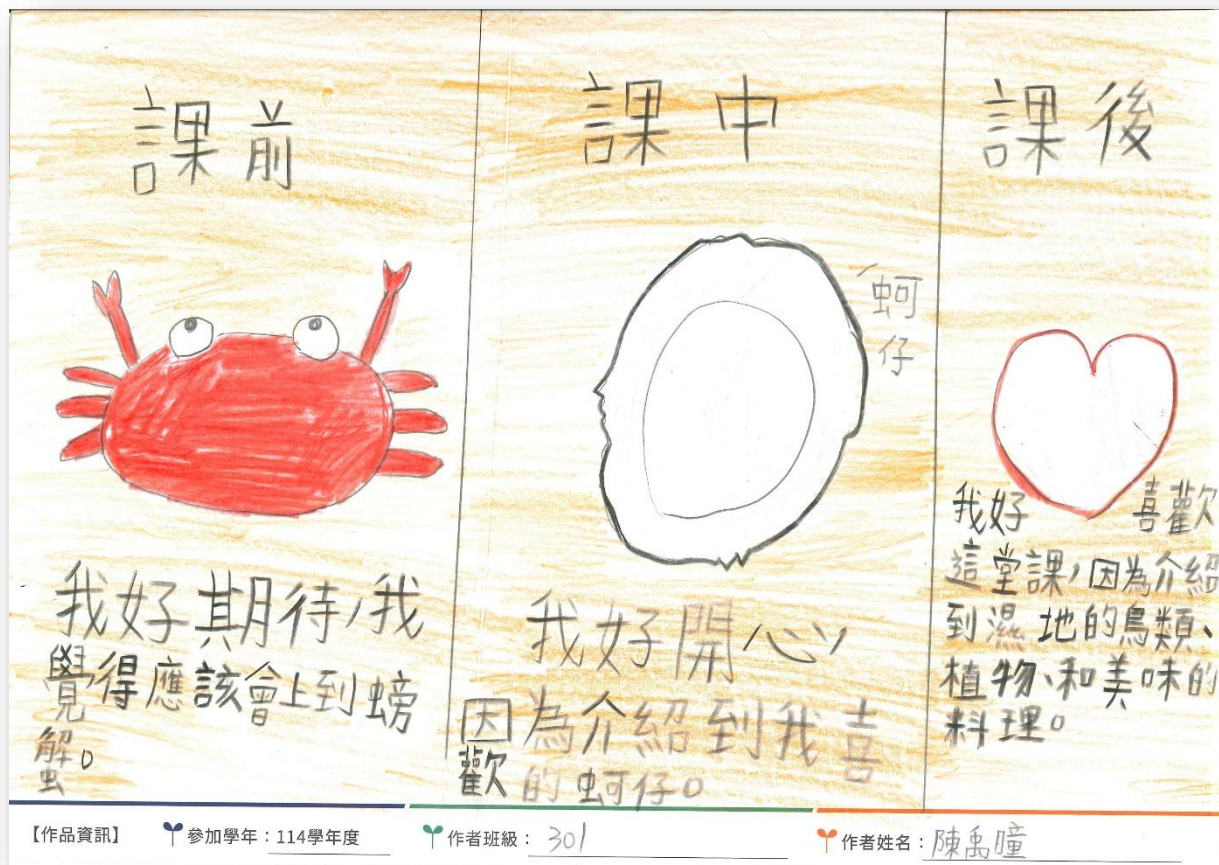 課前
我好期待,我
覺得應該會上到螃
蟹。
課中
蚵
仔
我好開心,
因為介紹到我喜
歡的蚵仔。
課後
我好喜歡
這堂課,因為介紹
到濕地的鳥類、
植物、和美味的
料理。
【作品資訊】 參加學年:114學年度 作者班級:301 作者姓名:陳禹瞳